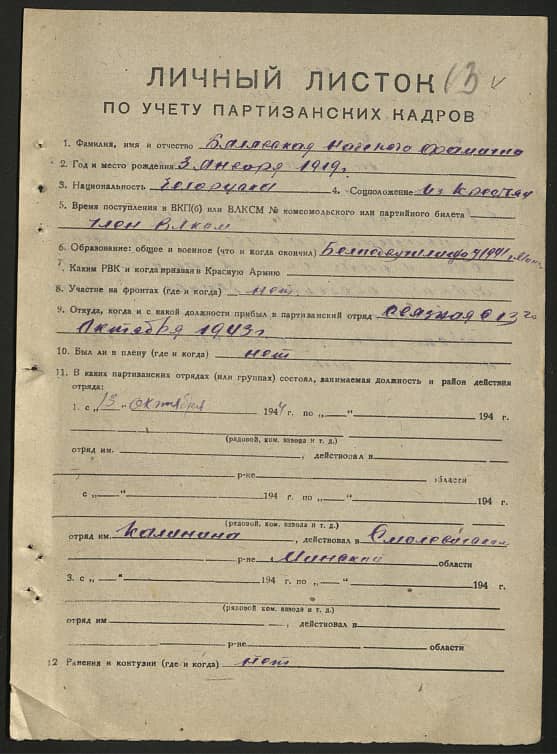 ЛИЧНЫЙ ЛИСТОК 13
ПО УЧЕТУ ПАРТИЗАНСКИХ КАДРОВ
1. Фамилия, имя и отчество
2. Год и место рождения 3 Января 1919г.
3. Национальность Белоруска 4. Соцположение Из Крестян
5. Время поступления в ВКП(б) или ВЛКСМ № комсомольского или партийного билета
Член Влксм
6. Образование: общее и военное (что и когда окончил) 1941
7. Каким РВК и когда призван в Красную Армию
8. Участие на фронтах (где и когда) нет.
9. Откуда, когда и с какой должности прибыл в партизанский отряд связная с 13 го
Октября 1943г
10. Был ли в плену (где и когда) нет
11. В каких партизанских отрядах (или группах) состоял, занимаемая должность и район действия
отряда:
1. с „13 " октября 1944 г. по „—" 194 г.
(рядовой, ком. взвода и т. д.)
отряд им. , действовал в
р-не области
с „—" 194 г. по „—" 194 г.
(рядовой, ком. взвода и т. д.)
отряд им. Калинина , действовал в
р-не Минской области
3. с „—" 194 г. по „—" 194 г.
(рядовой ком. взвода и т. д.)
отряд им , действовал в
р-не области
12 Ранения и контузии (где и когда) нет